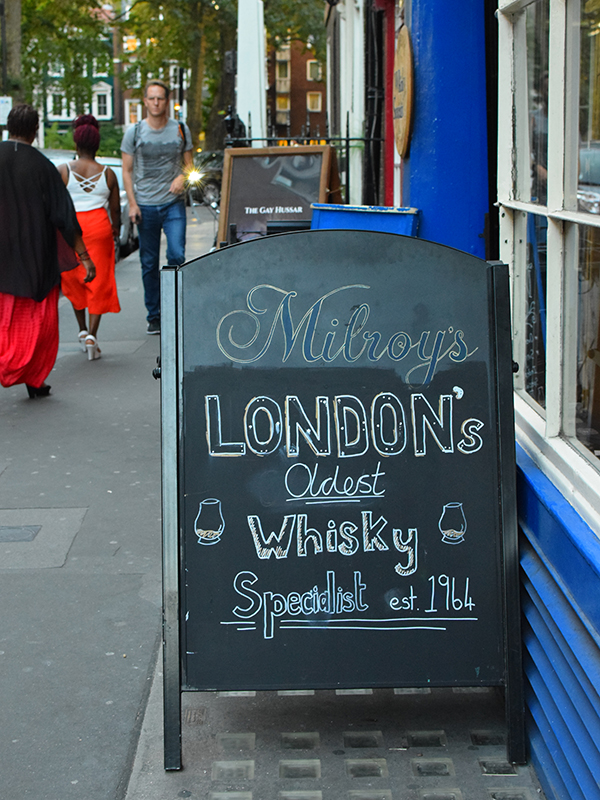 THE GAY HUSSAR
Milroy's
LONDON's
Oldest
Whisky
Specialist est. 1964